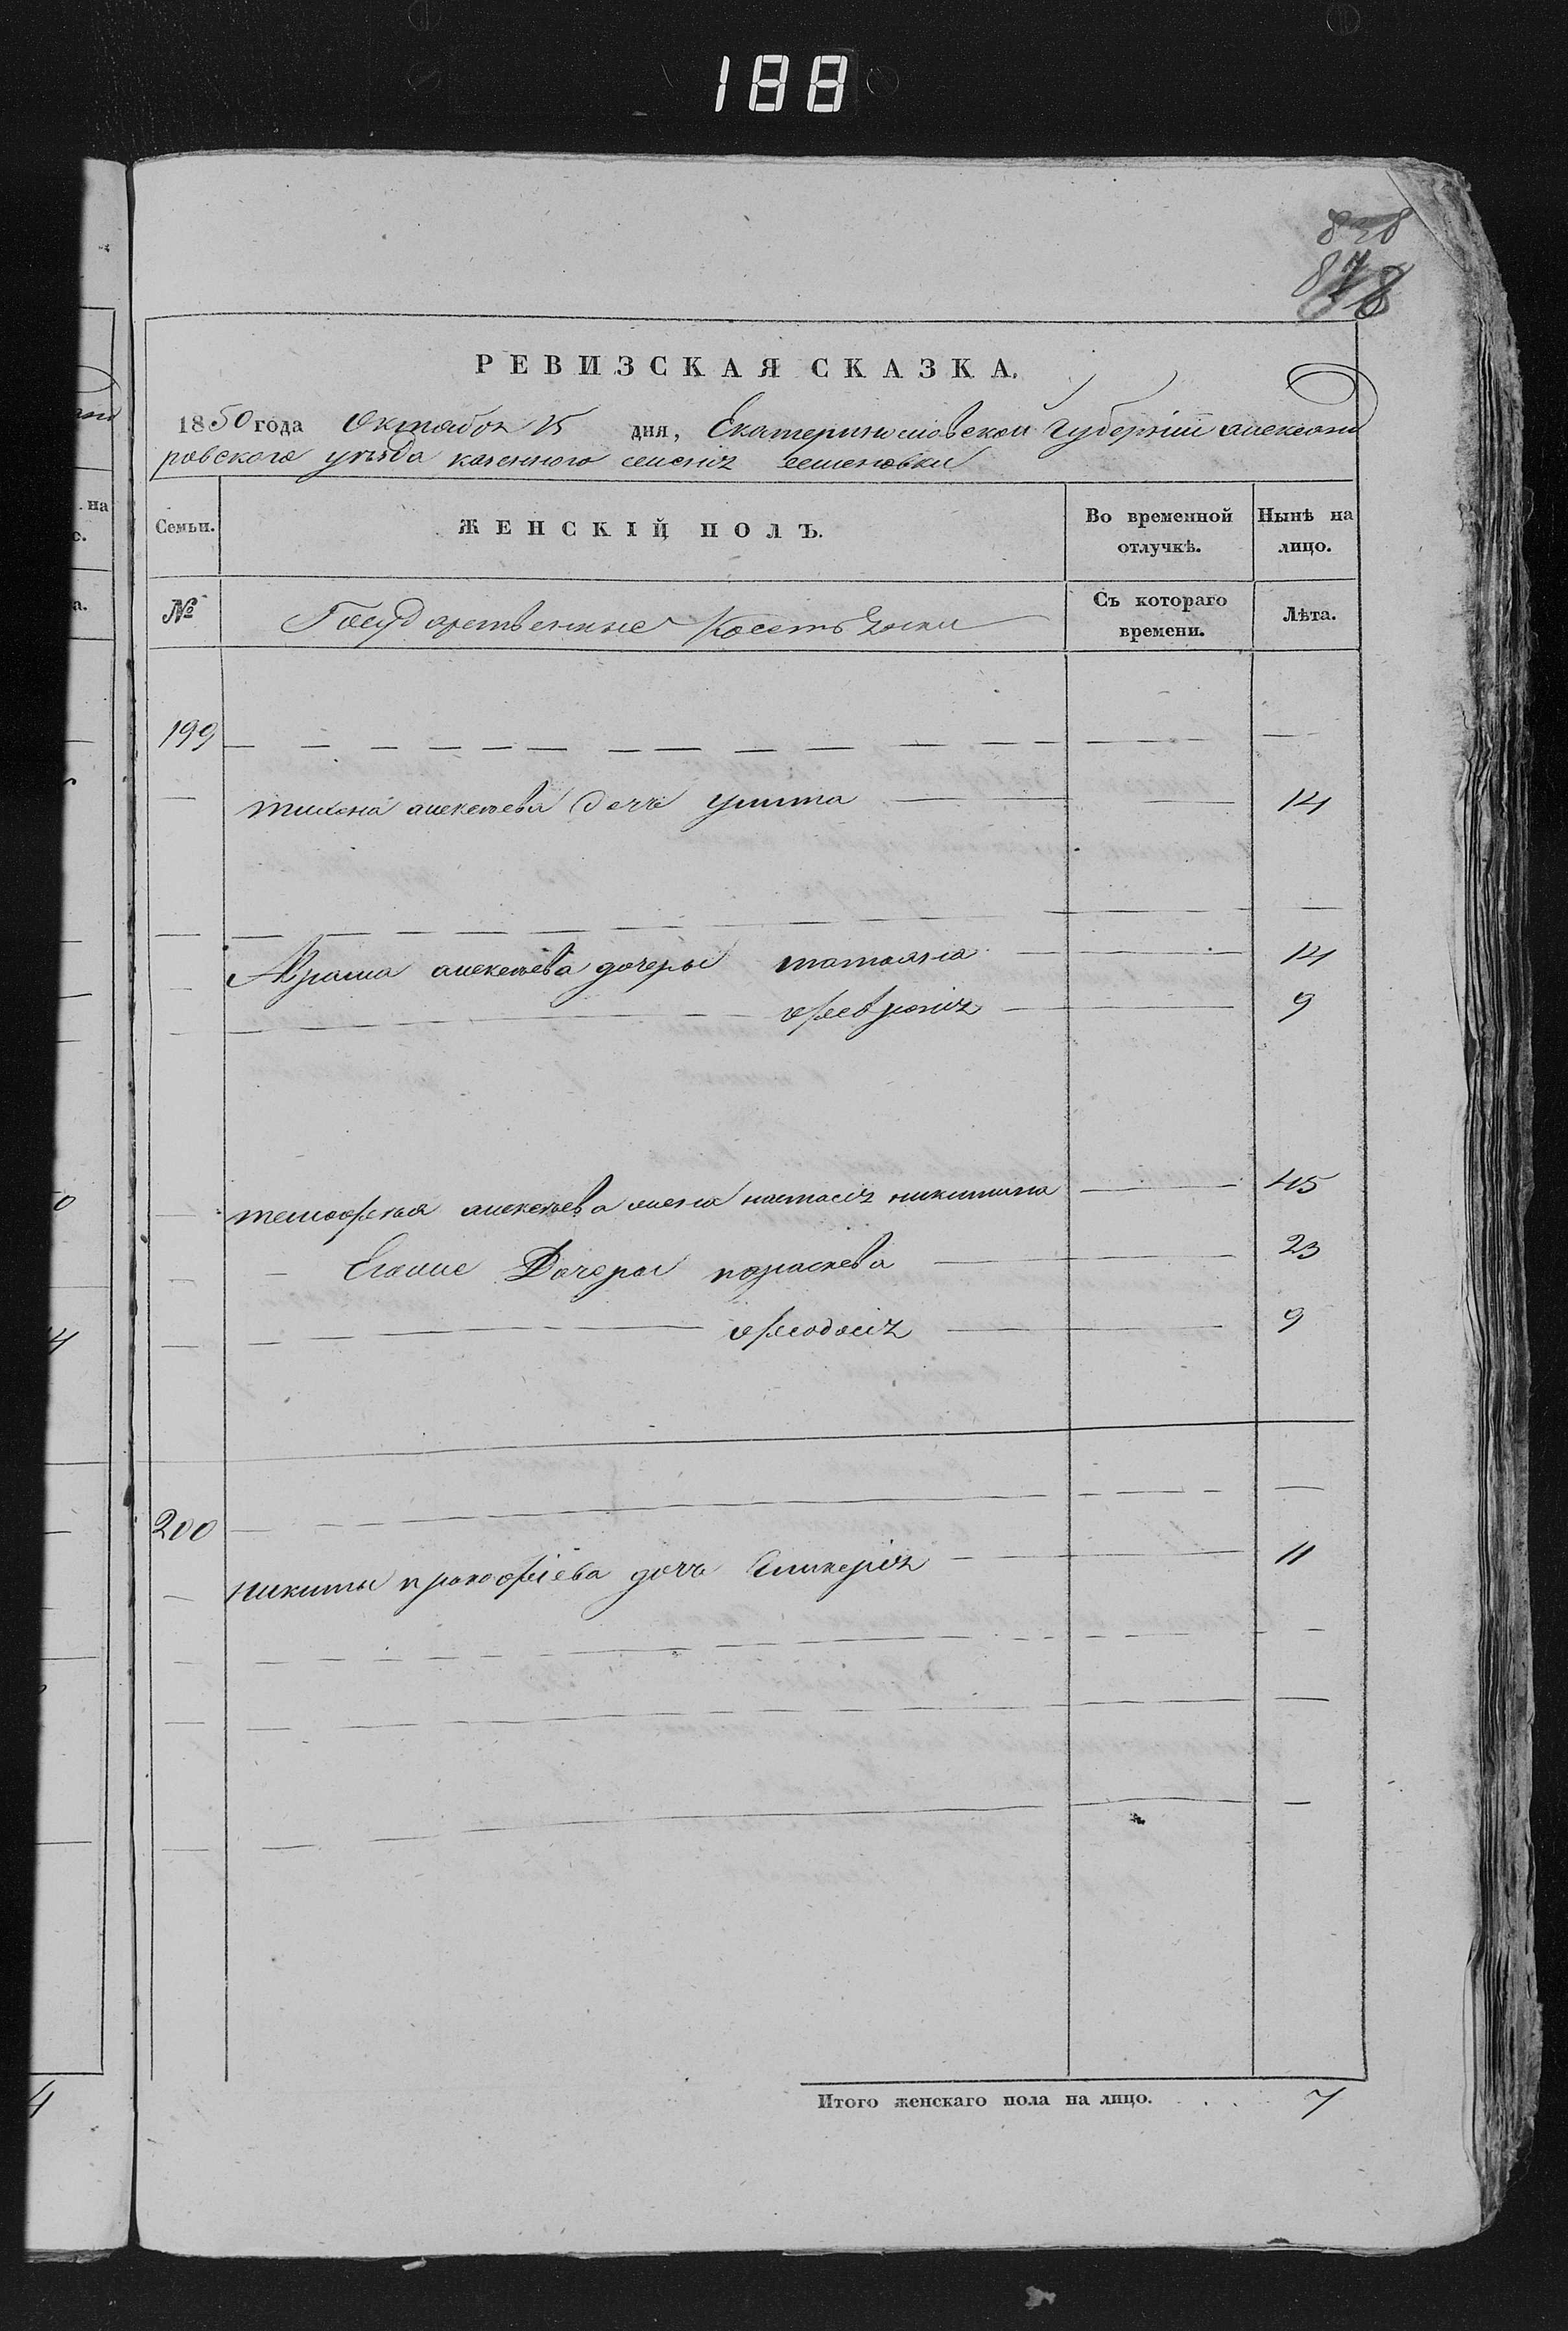 188
828
878
РЕВИЗСКАЯ СКАЗКА.
1850 года Октября 15 дня, Екатеринославской Губерніи александ
ровского уезда казенного селенія семеновки
Семьи. ЖЕНСКІЙ ПОЛЪ. Во временной отлучкѣ. Нынѣ на лицо.
№ Государственные Крестьянки Съ котораго времени. Лѣта.
199
тихона алексеева дочь улита 14
Абрама алексеева дочери татьяна 14
февронія 9
тимофея алексеева жена настасія никитина 45
Егоже Дочери параскева 23
феодосія 9
200
никиты прокофіева дочь Гликерія 11
Итого женскаго пола на лицо. . . . 7
на
с.
а.
0
4
4